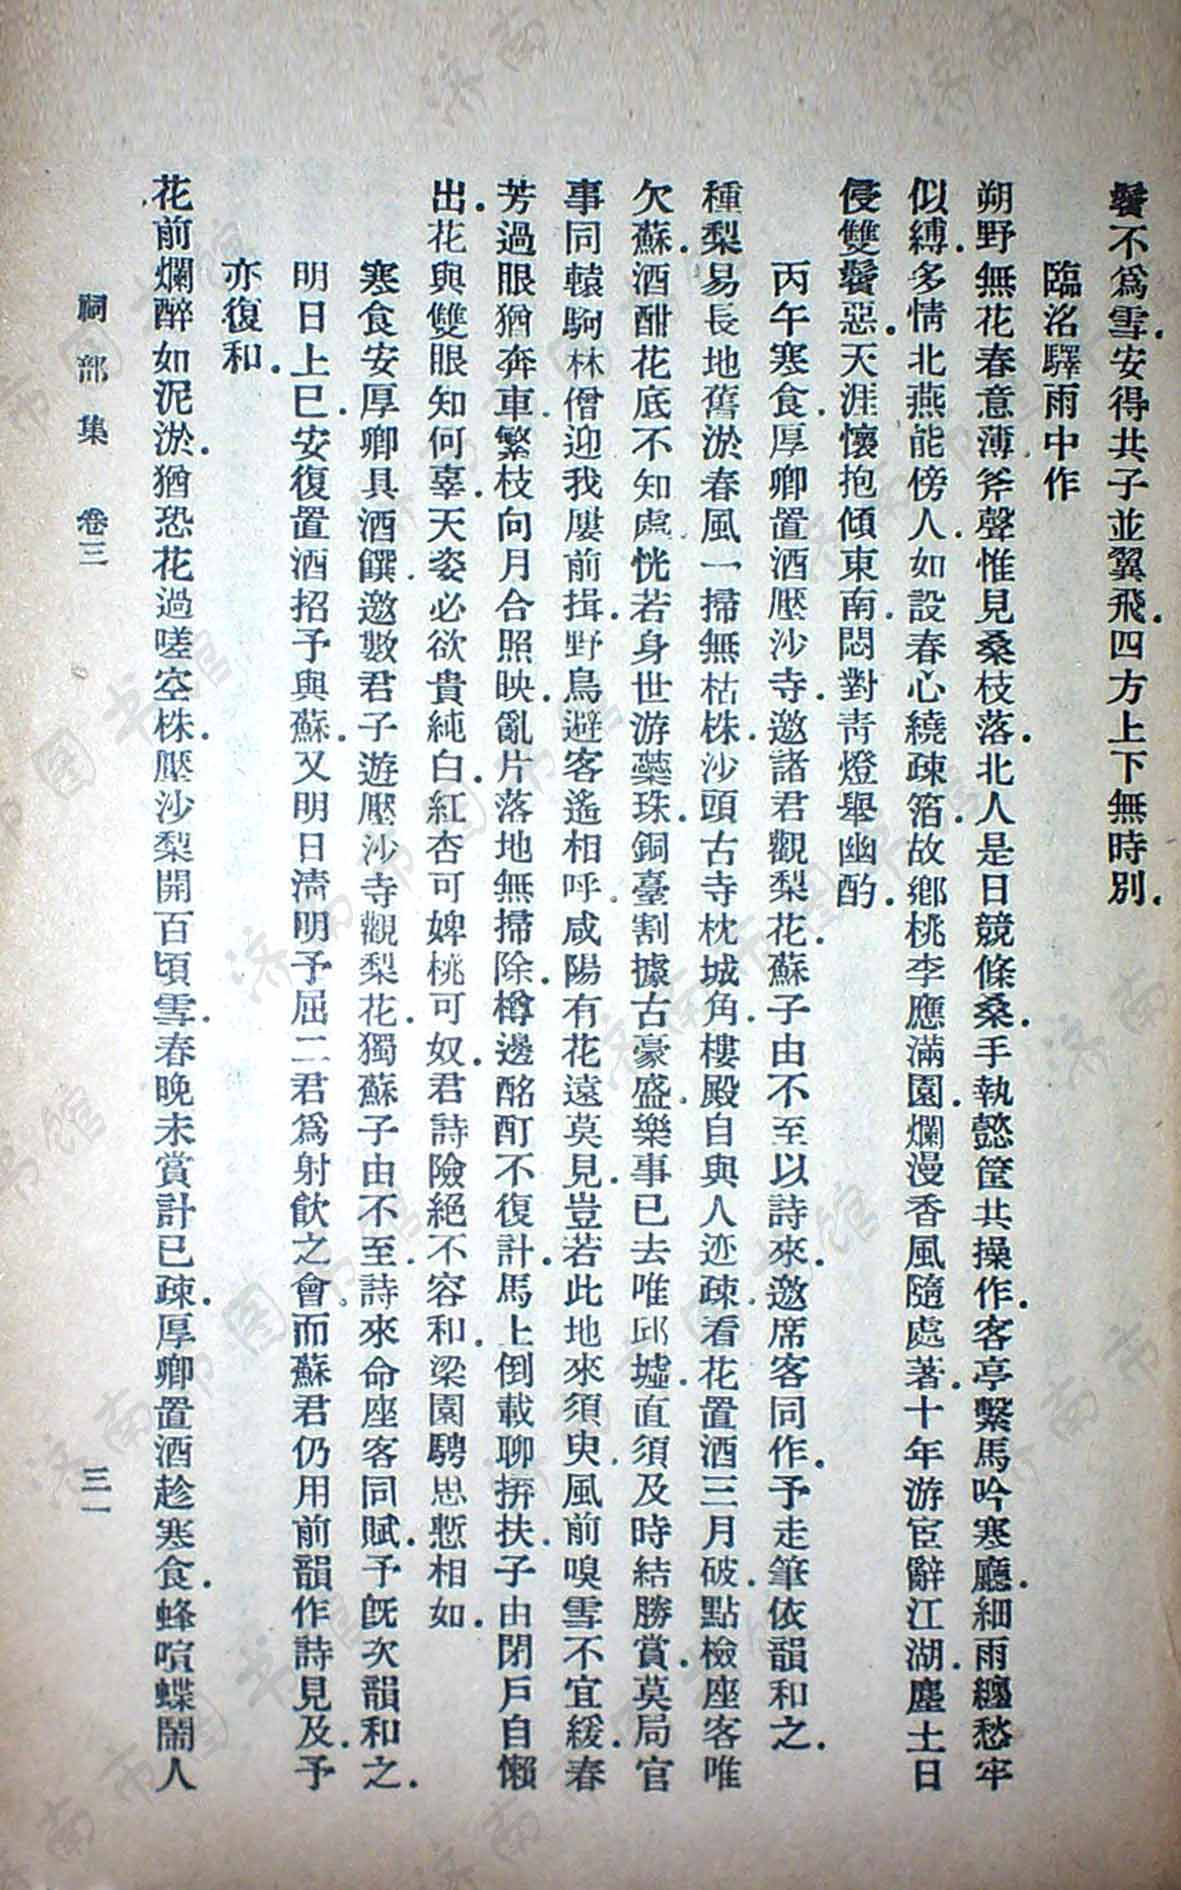 鬢不爲雪.安得共子並翼飛.四方上下無時別.
臨洺驛雨中作
朔野無花春意薄.斧聲惟見桑枝落.北人是日競條桑.手執懿筐共操作.客亭繫馬吟寒廳.細雨纏愁牢
似縛.多情北燕能傍人.如設春心繞疎箔.故鄉桃李應滿園.爛漫香風隨處著.十年游宦辭江湖.塵土日
侵雙鬢惡.天涯懷抱傾東南.悶對靑燈舉幽酌.
丙午寒食.厚卿置酒壓沙寺.邀諸君觀梨花.蘇子由不至以詩來.邀席客同作.予走筆依韻和之.
種梨易長地舊淤.春風一掃無枯株.沙頭古寺枕城角.樓殿自與人迹疎.看花置酒三月破.點檢座客唯
欠蘇.酒酣花底不知處.恍若身世游蘂珠.銅臺割據古豪盛.樂事已去唯邱墟.直須及時結勝賞.莫局官
事同轅駒.林僧迎我屢前揖.野鳥避客遙相呼.咸陽有花遠莫見.豈若此地來須臾.風前嗅雪不宜緩.春
芳過眼猶奔車.繁枝向月合照映.亂片落地無掃除.樽邊酩酊不復計.馬上倒載聊拚扶.子由閉戶自懶
出.花與雙眼知何辜.天姿必欲貴純白.紅杏可婢桃可奴.君詩險絕不容和.梁園騁思慙相如.
寒食安厚卿具酒饌.邀數君子遊壓沙寺觀梨花.獨蘇子由不至.詩來命座客同賦.予旣次韻和之.
明日上巳.安復置酒招予與蘇.又明日淸明予屈二君爲射飮之會.而蘇君仍用前韻作詩見及.予
亦復和.
花前爛醉如泥淤.猶恐花過嗟空株.壓沙梨開百頃雪.春晚未賞計已疎.厚卿置酒趁寒食.蜂喧蝶鬧人
祠部集 卷三 三一
济南市图书馆